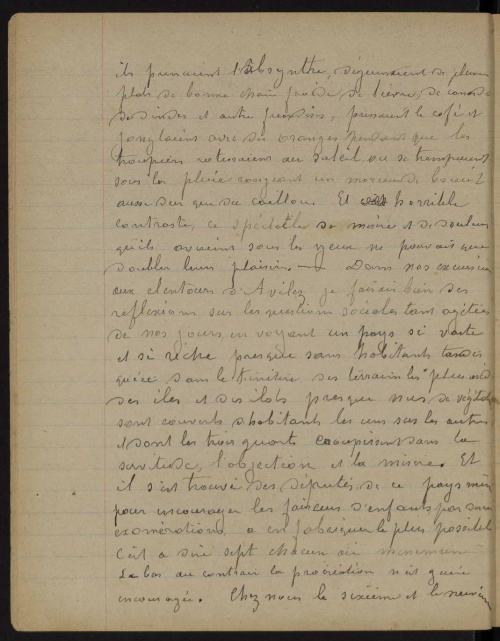 ils prenaient l'Absynthe, déjeunaient de plusieurs
plats de bonne chair froide, de lièvre, de canards
de dindes et autre friandises, prenaient le café et
jonglaient avec des oranges pendant que les
troupiers rotissaient au soleil ou se trempaient
sous la pluie rongeant un morceau de biscuit
aussi dur que du caillou. Et horrible
contraste, ce spectacle de misère et de douleurs
qu'ils avaient sous les yeux ne pouvait que
doubler leur plaisir. — Dans nos excursions
aux alentours d'Avilez je faisais bien des
reflexions sur les questions sociales tant agitées
de nos jours, en voyant un pays si vaste
et si riche presque sans habitants tandis
que dans le des terrains les plus
des iles et des ilots presque nus de
sont couverts d'habitants les uns sur les autres
et dont les trois quarts croupissent dans la
servitude, l'abjection et la misère. Et
il s'est trouvé des députés de ce pays
pour encourager les faiseurs d'enfants par des
exonérations a en fabriquer le plus possible
C'est a dire sept chacun au minimum
La bas au contraire la procréation n'est guère
encouragée. Chez nous le sixième et le